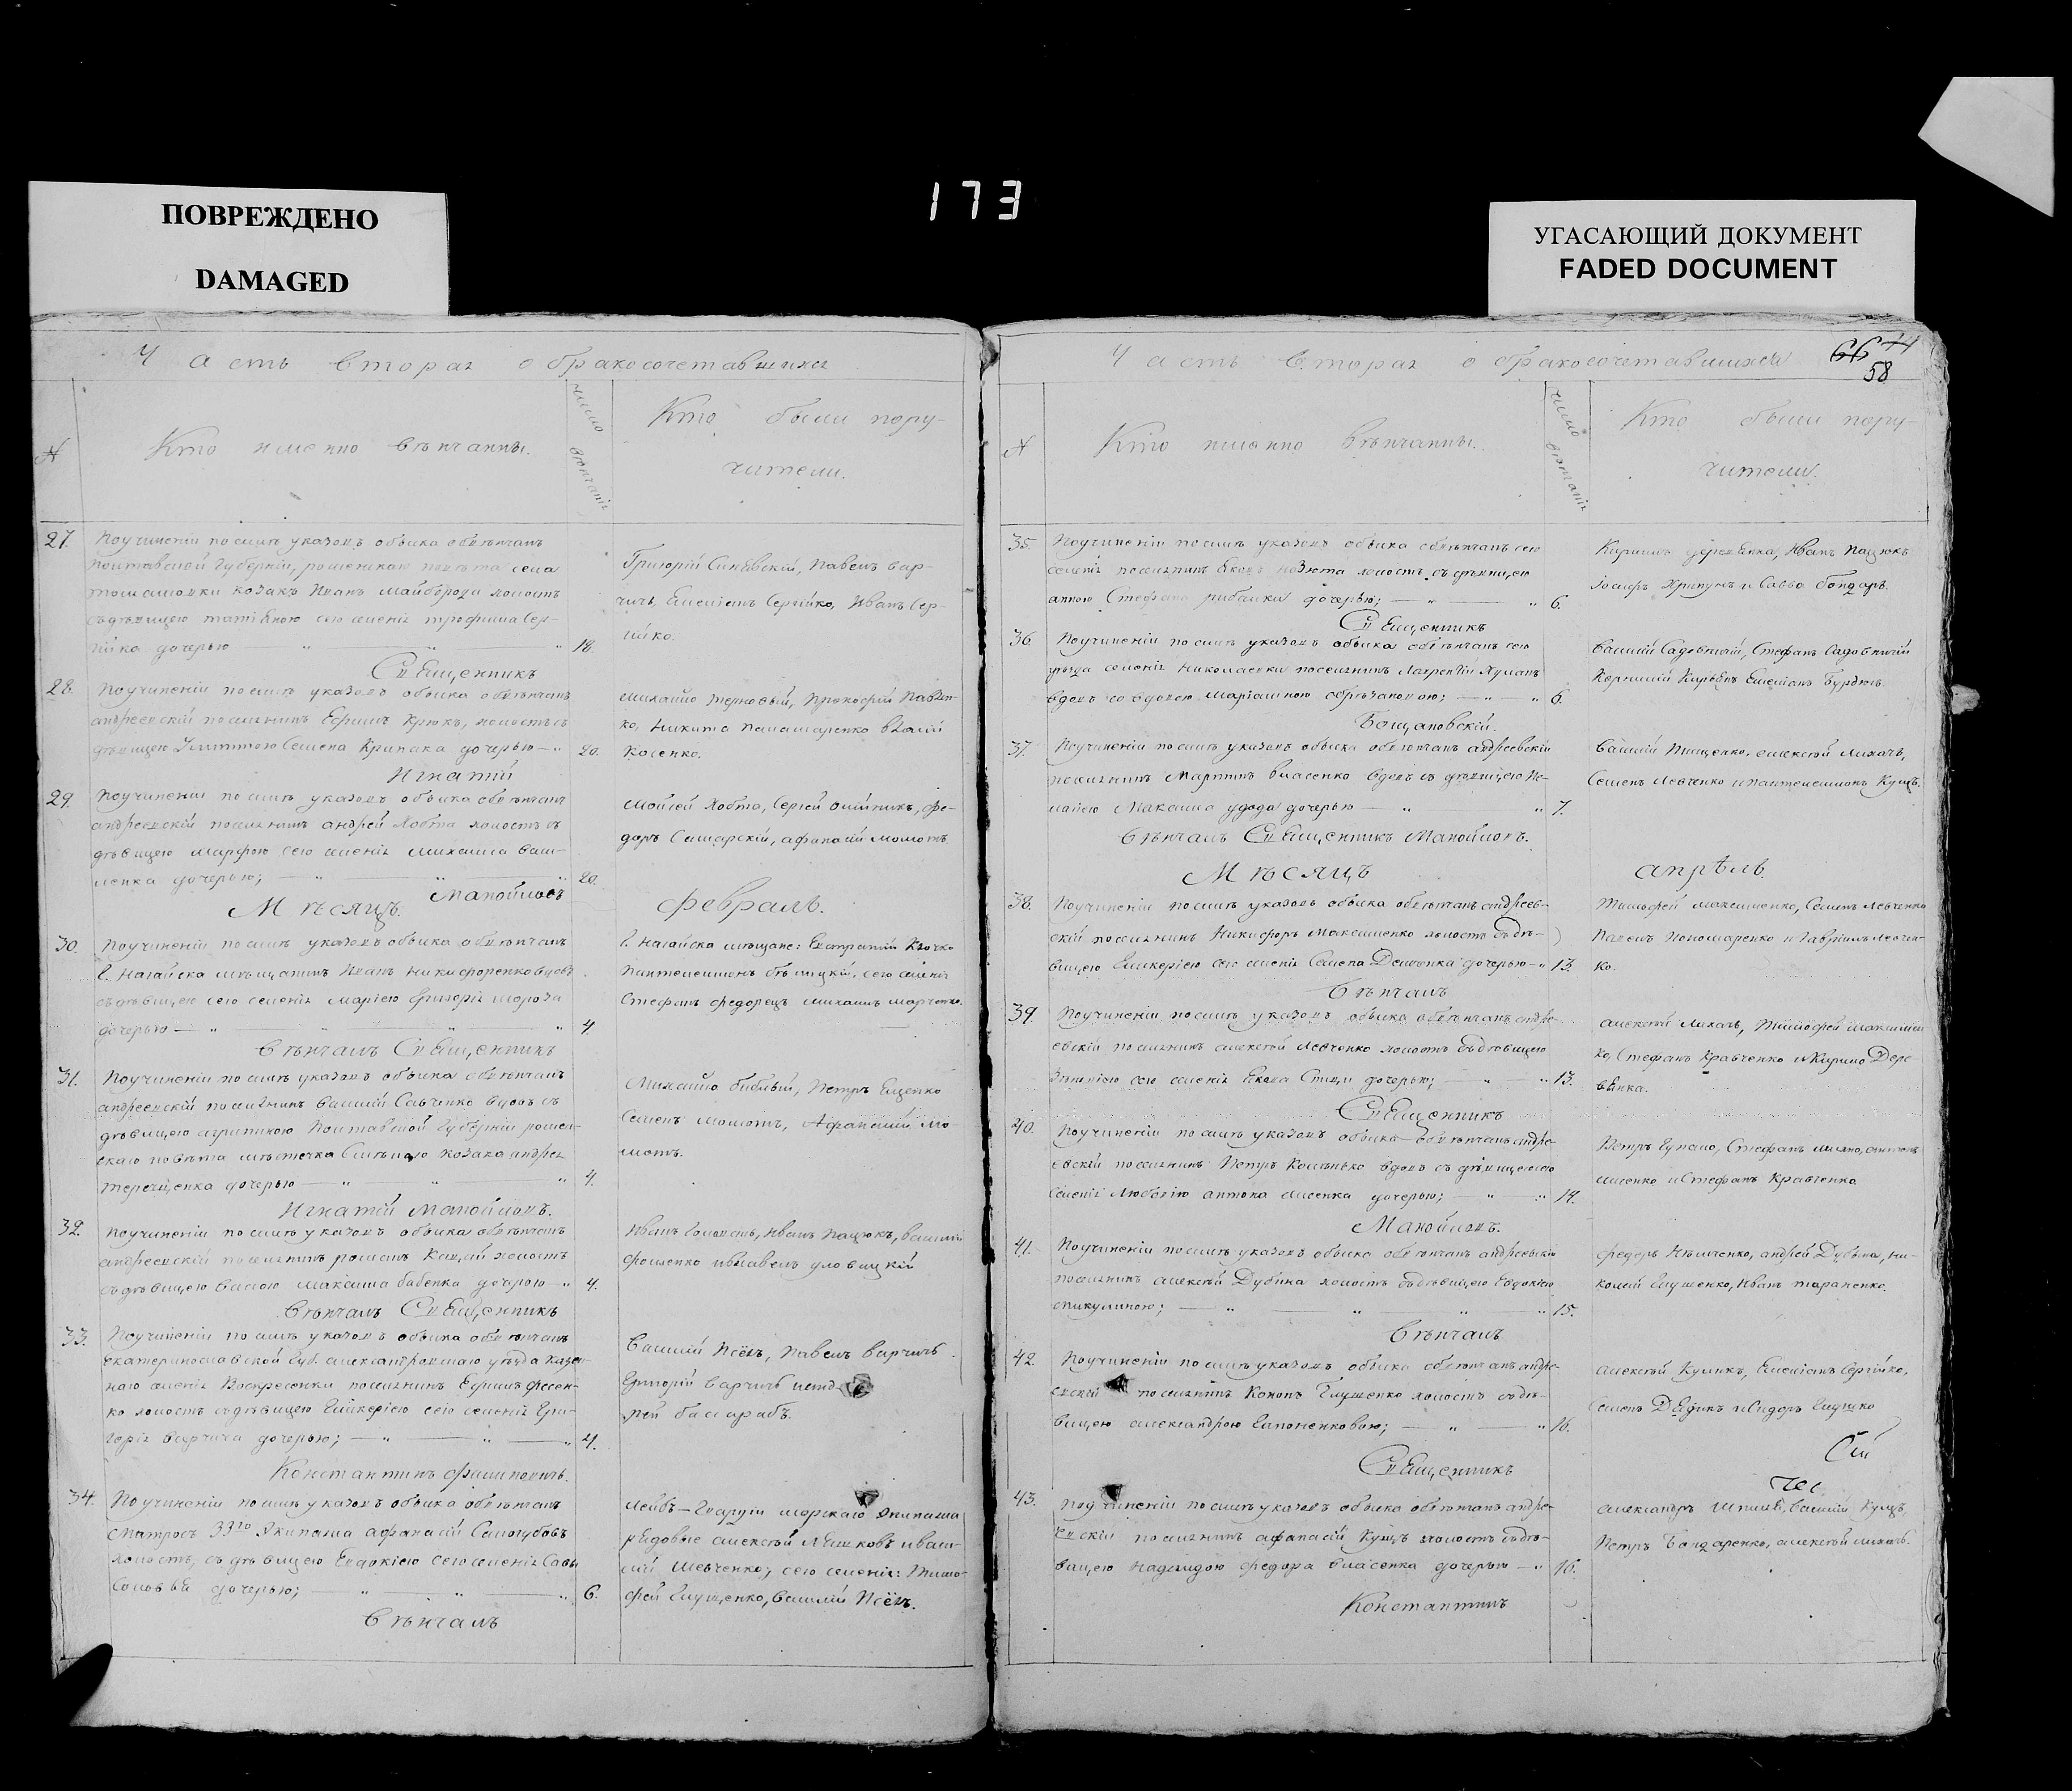 173
ПОВРЕЖДЕНО
DAMAGED
УГАСАЮЩИЙ ДОКУМЕНТ
FADED DOCUMENT
Часть вторая о бракосочетавшихся
№
Кто именно вѣнчаны.
число вѣнчанія
Кто были пору-
чители.
27. Поучиненіи посилѣ указовъ обыска обвѣнчанъ
Полтавской Губерніи, роменскаго повѣта села
козакъ Иванъ Майборода холостъ
съ дѣвицею татіяною сего селенія трофима Сер-
гійка дочерью 18.
Григорій Синявскій, Павелъ вар-
чичъ, Емеліянъ Сергійко, Иванъ Сер-
гійко.
Священникъ
28. Поучиненіи посилѣ указовъ обыска обвѣнчанъ
андреевскій поселянинъ Ефимъ Крюкъ, холостъ съ
дѣвицею Семена Крипака дочерью 20.
Михайло терновый, Прокофій Павлен-
ко, Никита василій
Косенко.
Игнатій
29. Поучиненіи посилѣ указовъ обыска обвѣнчанъ
андреевскій поселянинъ андрей Хобта холостъ съ
дѣвицею марфою сего селенія михаила васи-
ленка дочерью; 20.
Мойсей Хобта, Сергій олійникъ, фе-
доръ Самарскій, афанасій момотъ
Манойловъ
Мѣсяцъ. февраль.
30. Поучиненіи посилѣ указовъ обыска обвѣнчанъ
г. Нагайска мѣщанинъ Иванъ Никифоренко вдовъ
съ дѣвицею сего селенія маріею Григорія мороза
дочерью 4
г. Нагайска мѣщане: Евстратій Клочко
Пантелеимонъ бѣлицкій, сего селенія
Стефанъ федорецъ михаилъ марченко.
Вѣнчалъ Священникъ
31. Поучиненіи посилѣ указовъ обыска обвѣнчанъ
андреевскій поселянинъ василій Савченко вдовъ съ
дѣвицею агрипиною Полтавской Губерніи ромен-
скаго повѣта мѣстечка Смѣлаго козака андрея
терещенка дочерью 4.
Михайло бибивый, Петръ Ещенко
Семенъ момотъ, Афанасій мо-
мотъ.
Игнатій Манойловъ.
32. Поучиненіи посилѣ указовъ обыска обвѣнчанъ
андреевскій поселянинъ романъ холостъ
съ дѣвицею васою максима бабенка дочерью 4.
Иванъ Иванъ Пацюкъ, василій
фоменко и павелъ уловицкій
Вѣнчалъ Священникъ
33. Поучиненіи посилѣ указовъ обыска обвѣнчанъ
Екатеринославской Губ. александровскаго уѣзда казен-
наго селенія Воскресенки поселянинъ Ефимъ фесен-
ко холостъ съ дѣвицею Гликеріею сего селенія Гри-
горія варчича дочерью; 4.
Василій Псёлъ, Павелъ варчичъ
Григорій варчичъ
басарабъ.
Константинъ филиповичъ.
34. Поучиненіи посилѣ указовъ обыска обвѣнчанъ
Матросъ 33го Экипажа афанасій Самогубовъ
холостъ, съ дѣвицею Евдокіею сего селенія Савы
Соловья дочерью; 6.
Лейбъ-Гвардіи морскаго Экипажа
рядовые алексѣй Мяшковъ и васи-
лій Шевченко; сего селенія: тимо-
фей Глущенко, василій Псёлъ.
Вѣнчалъ
Часть вторая о бракосочетавшихся
66
58
№
Кто именно вѣнчаны.
число вѣнчанія
Кто были пору-
чители.
35. Поучиненіи посилѣ указовъ обыска обвѣнчанъ сего
селенія поселянинъ Яковъ холостъ съ дѣвицею
анною Стефана рибалки дочерью; 6.
Кирилъ деревянка, Иванъ пацюкъ
Іосифъ Хрипунъ и Савва бондарь.
Священникъ
36. Поучиненіи посилѣ указовъ обыска обвѣнчанъ сего
уѣзда селенія Николаевки поселянинъ Лаврентій
вдовъ со вдовою 6.
василій Садовничій, Стефанъ Садовничій
Корнилій Емеліянъ
Бощановскій.
37. Поучиненіи посилѣ указовъ обыска обвѣнчанъ андреевскій
поселянинъ Мартинъ власенко вдовъ съ дѣвицею Пе-
лагіею Максима удода дочерью 7.
Василій Тищенко, алексѣй лихачъ,
Семенъ Левченко и пантелеимонъ Кущъ.
Вѣнчалъ Священникъ Манойловъ.
Мѣсяцъ апрѣль.
38. Поучиненіи посилѣ указовъ обыска обвѣнчанъ андреев-
скій поселянинъ Никифоръ Максименко холостъ съ дѣ-
вицею Гликеріею сего селенія Семена дочерью 13.
Тимофей максименко, Семенъ Левченко
Павелъ Пономаренко и Гавріилъ левчен-
ко.
Вѣнчалъ
39. Поучиненіи посилѣ указовъ обыска обвѣнчанъ андре-
евскій поселянинъ алексѣй Левченко холостъ съ дѣвицею
сего селенія Якова дочерью; 13.
алексѣй Лихачъ, Тимофей максимен
ко, Стефанъ Кравченко и Кирило Дере-
вянка.
Священникъ
40. Поучиненіи посилѣ указовъ обыска обвѣнчанъ андре-
евскій поселянинъ Петръ вдовъ съ дѣвицею сего
селенія Любовію антона дочерью; 14.
Петръ Стефанъ антонъ
и Стефанъ Кравченко
Манойловъ.
41. Поучиненіи посилѣ указовъ обыска обвѣнчанъ андреевскій
поселянинъ алексѣй Дубина холостъ съ дѣвицею Евдокіею
микулиною; 15.
федоръ Нѣмченко, андрей Дубина, ни-
колай Глущенко, Иванъ тараненко.
Вѣнчалъ
42. Поучиненіи посилѣ указовъ обыска обвѣнчанъ андре-
евскій поселянинъ Кононъ Глущенко холостъ съ дѣ-
вицею александрою Гапоненковою; 16.
алексѣй Куликъ, Емеліянъ Сергійко,
Семенъ и Сидоръ
Священникъ
43. Поучиненіи посилѣ указовъ обыска обвѣнчанъ андре-
евскій поселянинъ афанасій Кущъ холостъ съ дѣ-
вицею надеждою федора власенка дочерью 16.
александръ василій Кущъ,
Петръ Бондаренко, алексѣй
Константинъ